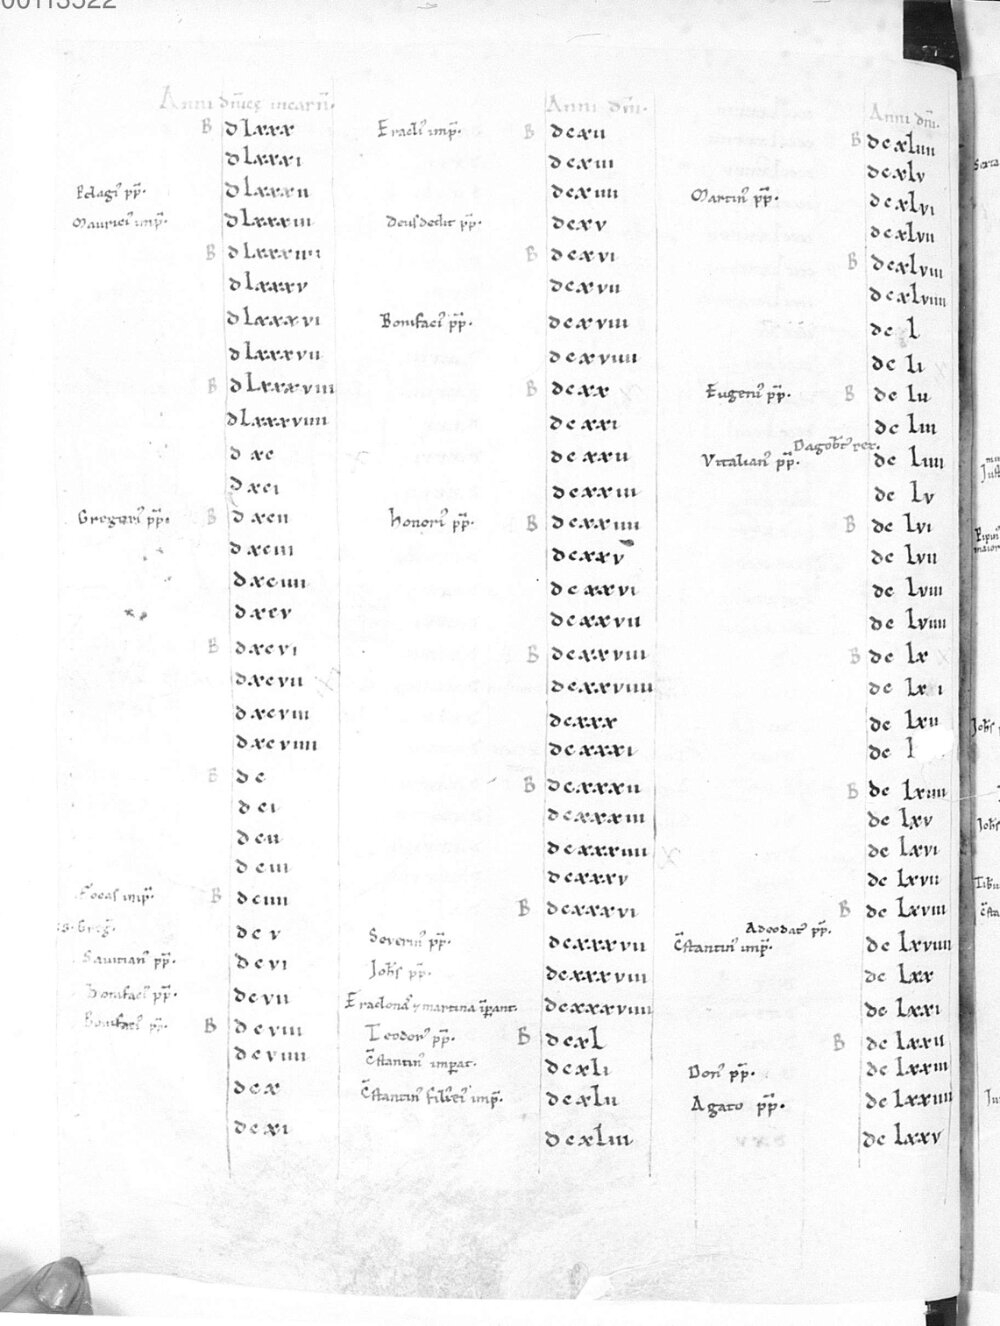 00113522
Anni dn̄icę incarn̄.
B dlxxx
dlxxxi
Pelagi' pp̄. dlxxxii
Maurici' imp̄. dlxxxiii
B dlxxxiiii
dlxxxv
dlxxxvi
dlxxxvii
B dlxxxviii
dlxxxviiii
dxc
dxci
Gregori' pp̄. B dxcii
dxciii
dxciiii
dxcv
B dxcvi
dxcvii
dxcviii
dxcviiii
B dc
dci
dcii
dciii
Focas imp̄. B dciiii
s. Greg̅. dcv
Savinian' pp̄. dcvi
Bonifaci' pp̄. dcvii
Bonifaci' pp̄. B dcviii
dcviiii
dcx
dcxi
Anni dn̄i.
Eracli' imp̄. B dcxii
dcxiii
dcxiiii
Deusdedit pp̄. dcxv
B dcxvi
dcxvii
Bonifaci' pp̄. dcxviii
dcxviiii
B dcxx
dcxxi
dcxxii
dcxxiii
honori' pp̄. B dcxxiiii
dcxxv
dcxxvi
dcxxvii
B dcxxviii
dcxxviiii
dcxxx
dcxxxi
B dcxxxii
dcxxxiii
dcxxxiiii
dcxxxv
B dcxxxvi
Severin' pp̄. dcxxxvii
Joh̄s pp̄. dcxxxviii
Eraclona' ⁊ martina īpant. dcxxxviiii
Teodor' pp̄. B dcxl
C̄stantin' imperat. dcxli
C̄stantin' fili' ei' imp̄. dcxlii
dcxliii
Anni dn̄i.
B dcxliiii
dcxlv
Martin' pp̄. dcxlvi
dcxlvii
B dcxlviii
dcxlviiii
dcl
dcli
Eugeni' pp̄. B dclii
dcliii
Dagob̄t' rex.
Vitalian' pp̄. dcliiii
dclv
B dclvi
dclvii
dclviii
dclviiii
B dclx
dclxi
dclxii
dcl
B dclxiiii
dclxv
dclxvi
dclxvii
B dclxviii
Adeodat' pp̄.
C̄stantin' imp̄. dclxviiii
dclxx
dclxxi
B dclxxii
Don' pp̄. dclxxiii
Agato pp̄. dclxxiiii
dclxxv